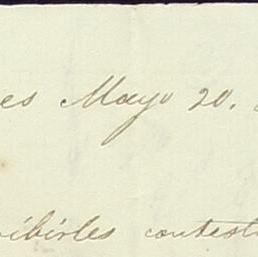 es Mayo 20.
ibirles contest